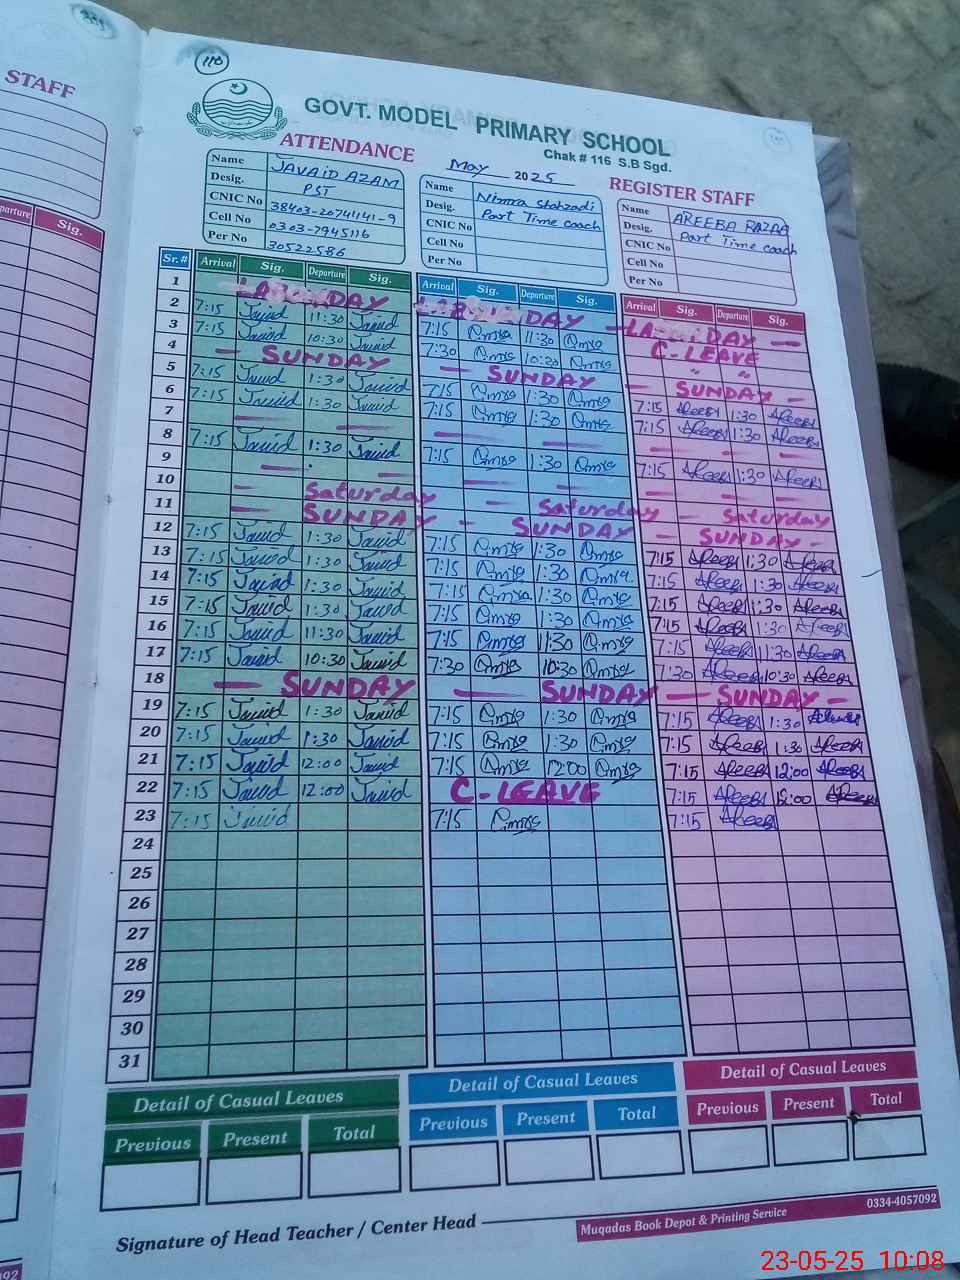 STAFF
110
GOVT. MODEL PRIMARY SCHOOL
Chak # 116 S.B Sgd.
ATTENDANCE May 2025 REGISTER STAFF
Name JAVAID AZAM
Desig. PST
CNIC No 38403-20741141-9
Cell No 0303-7945116
Per No 30522586
Name Nimra Shahzadi
Desig. Part Time coach
CNIC No
Cell No
Per No
Name AREEBA RAZAQ
Desig. Part Time coach
CNIC No
Cell No
Per No
parture Sig.
Sr.# Arrival Sig. Departure Sig. Arrival Sig. Departure Sig. Arrival Sig. Departure Sig.
1 LABOUR DAY LABOUR DAY LABOUR DAY
2 7:15 Javid 11:30 Javid 7:15 11:30 C-LEAVE
3 7:15 Javid 10:30 Javid 7:30 10:30 " "
4 SUNDAY SUNDAY SUNDAY
5 7:15 Javid 1:30 Javid 7:15 1:30 7:15 Areeba 1:30 Areeba
6 7:15 Javid 1:30 Javid 7:15 1:30 7:15 Areeba 1:30 Areeba
7
8 7:15 Javid 1:30 Javid 7:15 1:30 7:15 Areeba 1:30 Areeba
9
10 Saturday Saturday Saturday
11 SUNDAY SUNDAY SUNDAY
12 7:15 Javid 1:30 Javid 7:15 1:30 7:15 Areeba 1:30 Areeba
13 7:15 Javid 1:30 Javid 7:15 1:30 7:15 Areeba 1:30 Areeba
14 7:15 Javid 1:30 Javid 7:15 1:30 7:15 Areeba 1:30 Areeba
15 7:15 Javid 1:30 Javid 7:15 1:30 7:15 Areeba 1:30 Areeba
16 7:15 Javid 11:30 Javid 7:15 11:30 7:15 Areeba 11:30 Areeba
17 7:15 Javid 10:30 Javid 7:30 10:30 7:30 Areeba 10:30 Areeba
18 SUNDAY SUNDAY SUNDAY
19 7:15 Javid 1:30 Javid 7:15 1:30 7:15 Areeba 1:30
20 7:15 Javid 1:30 Javid 7:15 1:30 7:15 Areeba 1:30 Areeba
21 7:15 Javid 12:00 Javid 7:15 12:00 7:15 Areeba 12:00 Areeba
22 7:15 Javid 12:00 Javid C-LEAVE 7:15 Areeba 12:00 Areeba
23 7:15 Javid 7:15 7:15 Areeba
24
25
26
27
28
29
30
31
Detail of Casual Leaves Detail of Casual Leaves Detail of Casual Leaves
Previous Present Total Previous Present Total Previous Present Total
Signature of Head Teacher / Center Head
Muqadas Book Depot & Printing Service 0334-4057092
23-05-25 10:08